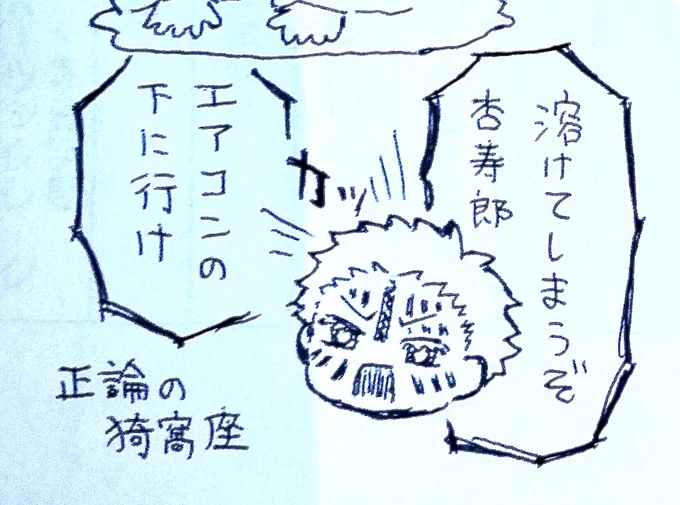 溶けてしまうぞ
杏寿郎
カッ
エアコンの
下に行け
正論の
猗窩座